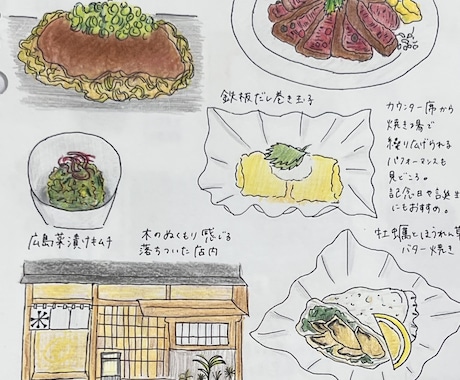 鉄板だし巻き玉子
カウンター席から
焼き場で
繰り広げられる
パフォーマンスも
見どころ。
記念日や誕生
にもおすすめ。
広島菜漬けキムチ
木のぬくもり感じる
落ちついた店内
牡蠣とほうれん草
バター焼き